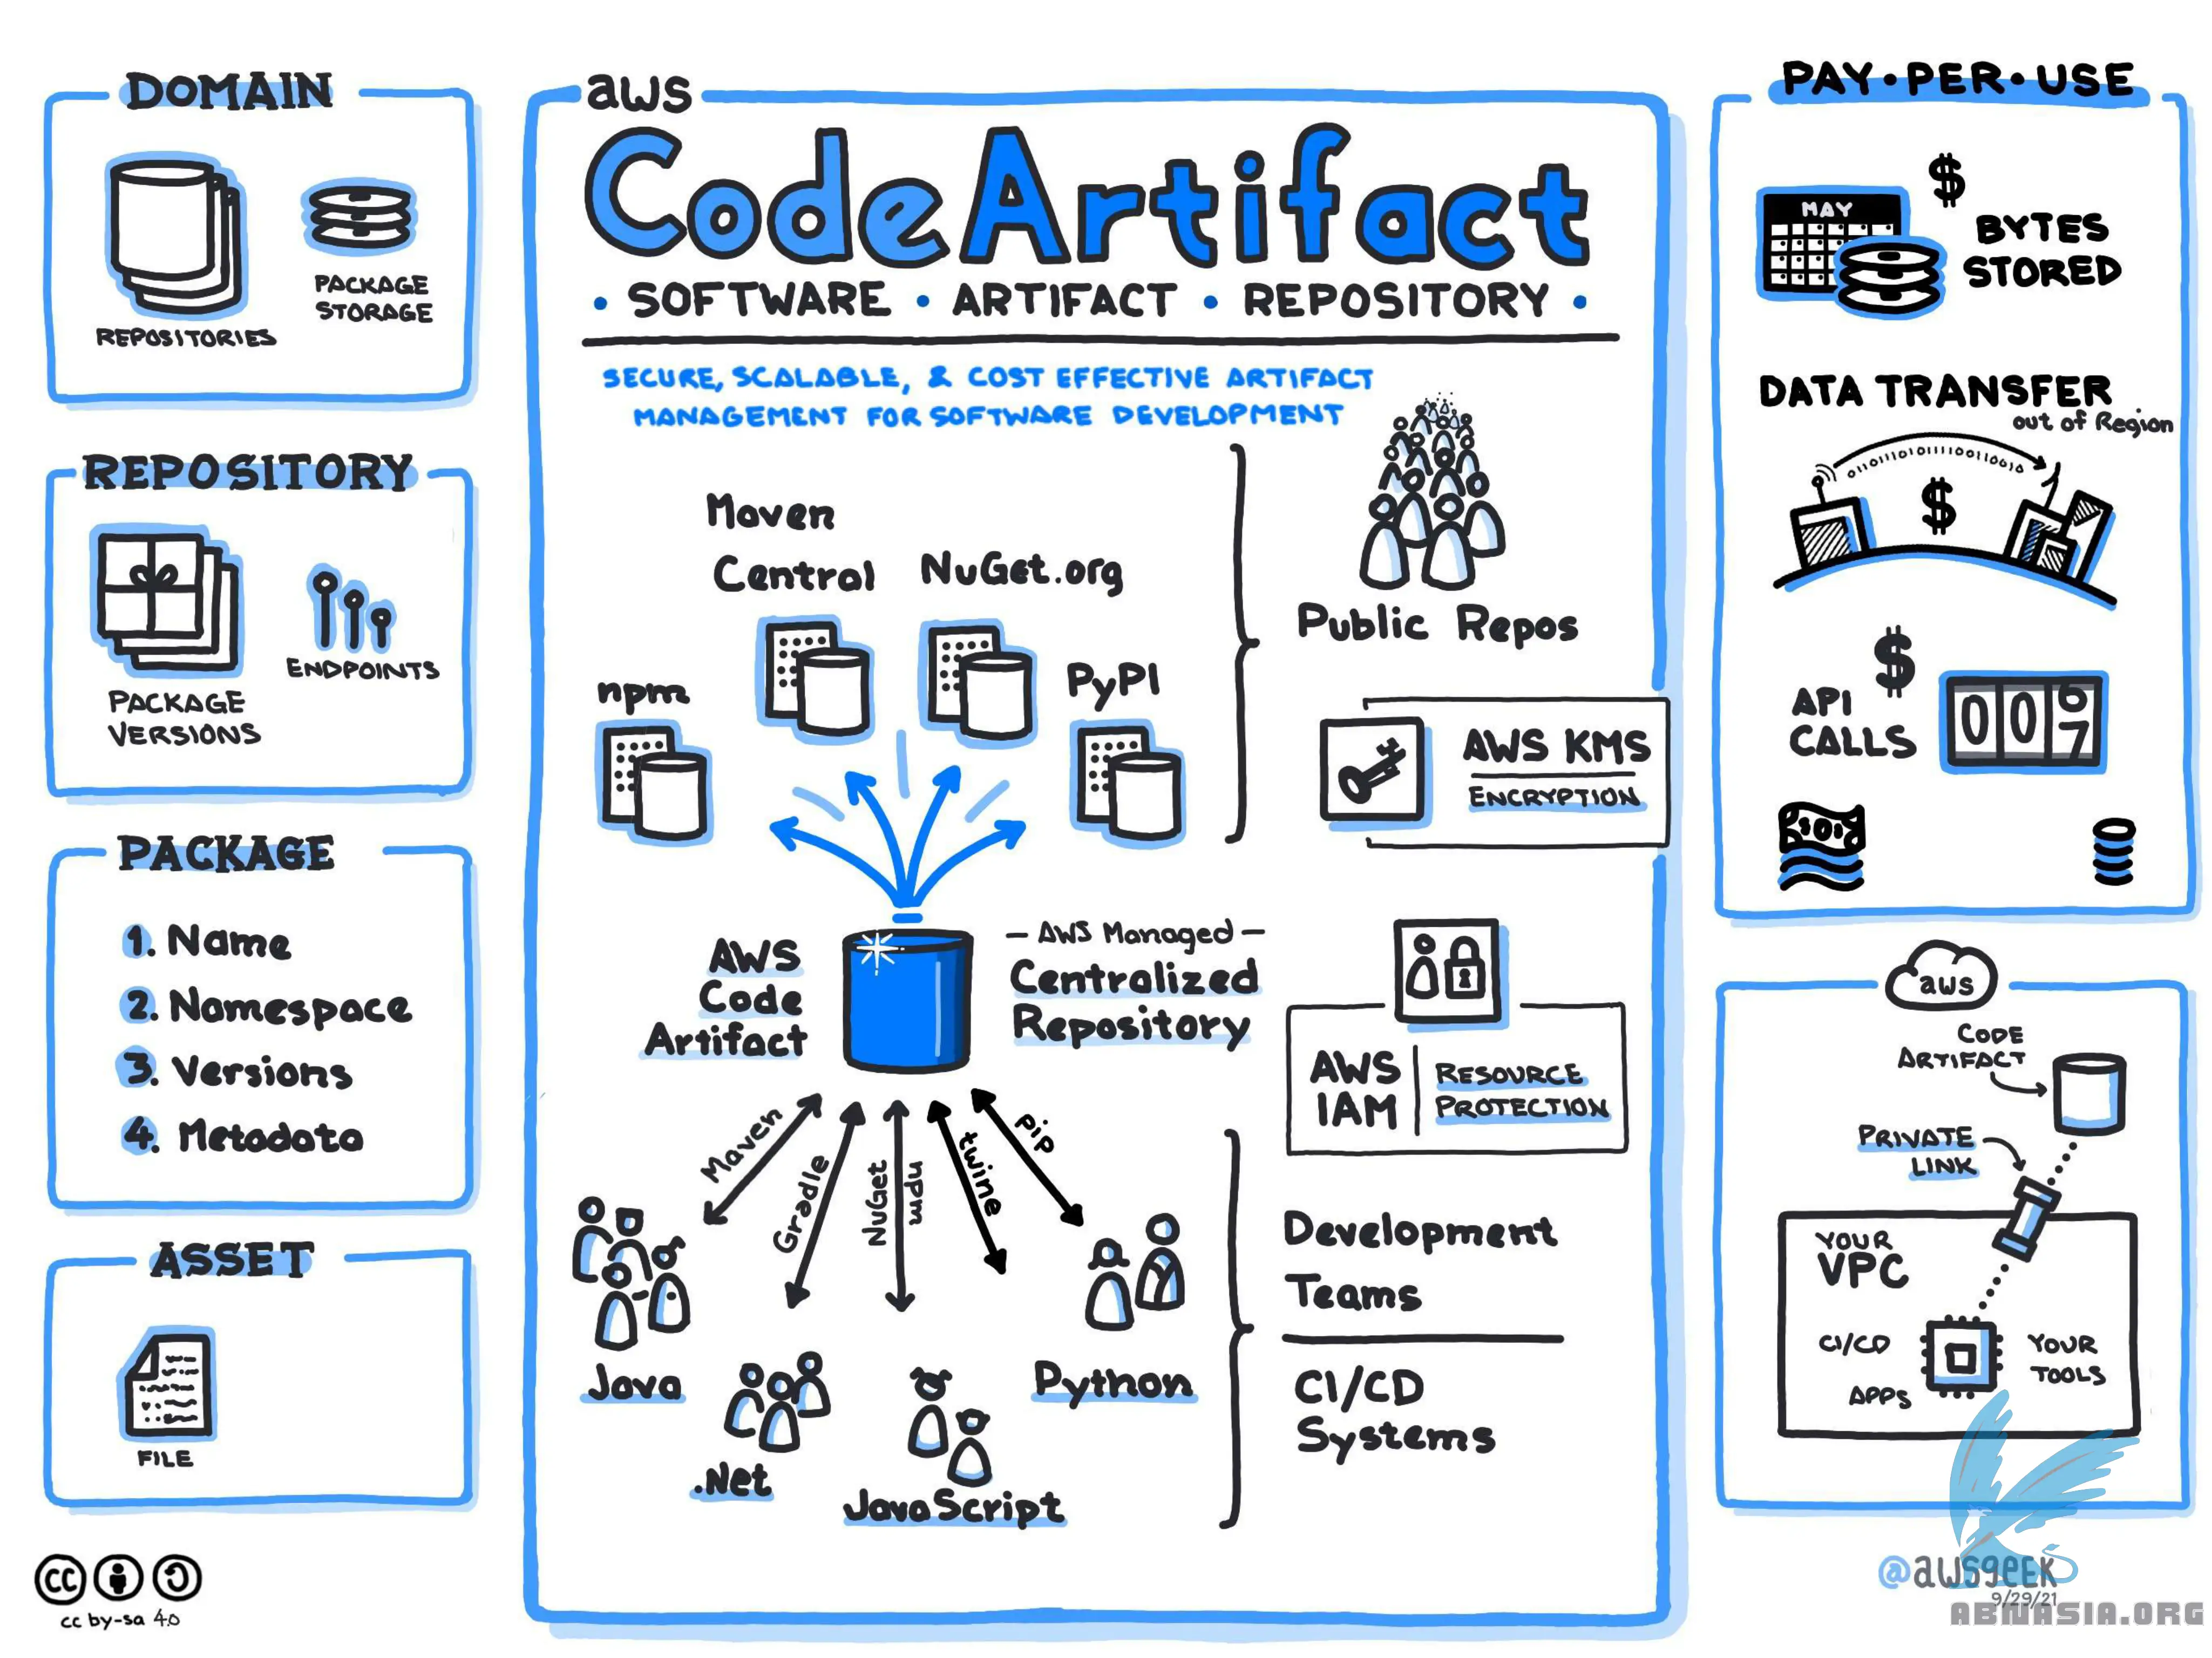 DOMAIN
REPOSITORIES
PACKAGE
STORAGE
REPOSITORY
PACKAGE
VERSIONS
ENDPOINTS
PACKAGE
1. Name
2. Namespace
3. Versions
4. Metadata
ASSET
FILE
cc
cc by-sa 4.0
aws
CodeArtifact
• SOFTWARE • ARTIFACT • REPOSITORY •
SECURE, SCALABLE, & COST EFFECTIVE ARTIFACT
MANAGEMENT FOR SOFTWARE DEVELOPMENT
Maven
Central
NuGet.org
npm
PyPI
Public Repos
AWS KMS
ENCRYPTION
AWS
Code
Artifact
– AWS Managed –
Centralized
Repository
AWS
IAM
RESOURCE
PROTECTION
Maven
Gradle
NuGet
npm
twine
pip
Java
.Net
JavaScript
Python
Development
Teams
CI/CD
Systems
PAY•PER•USE
MAY
$
BYTES
STORED
DATA TRANSFER
out of Region
$
$
API
CALLS
0 0 6
7
aws
CODE
ARTIFACT
PRIVATE
LINK
YOUR
VPC
CI/CD
APPS
YOUR
TOOLS
@awsgeek
9/29/21
ABNASIA.ORG